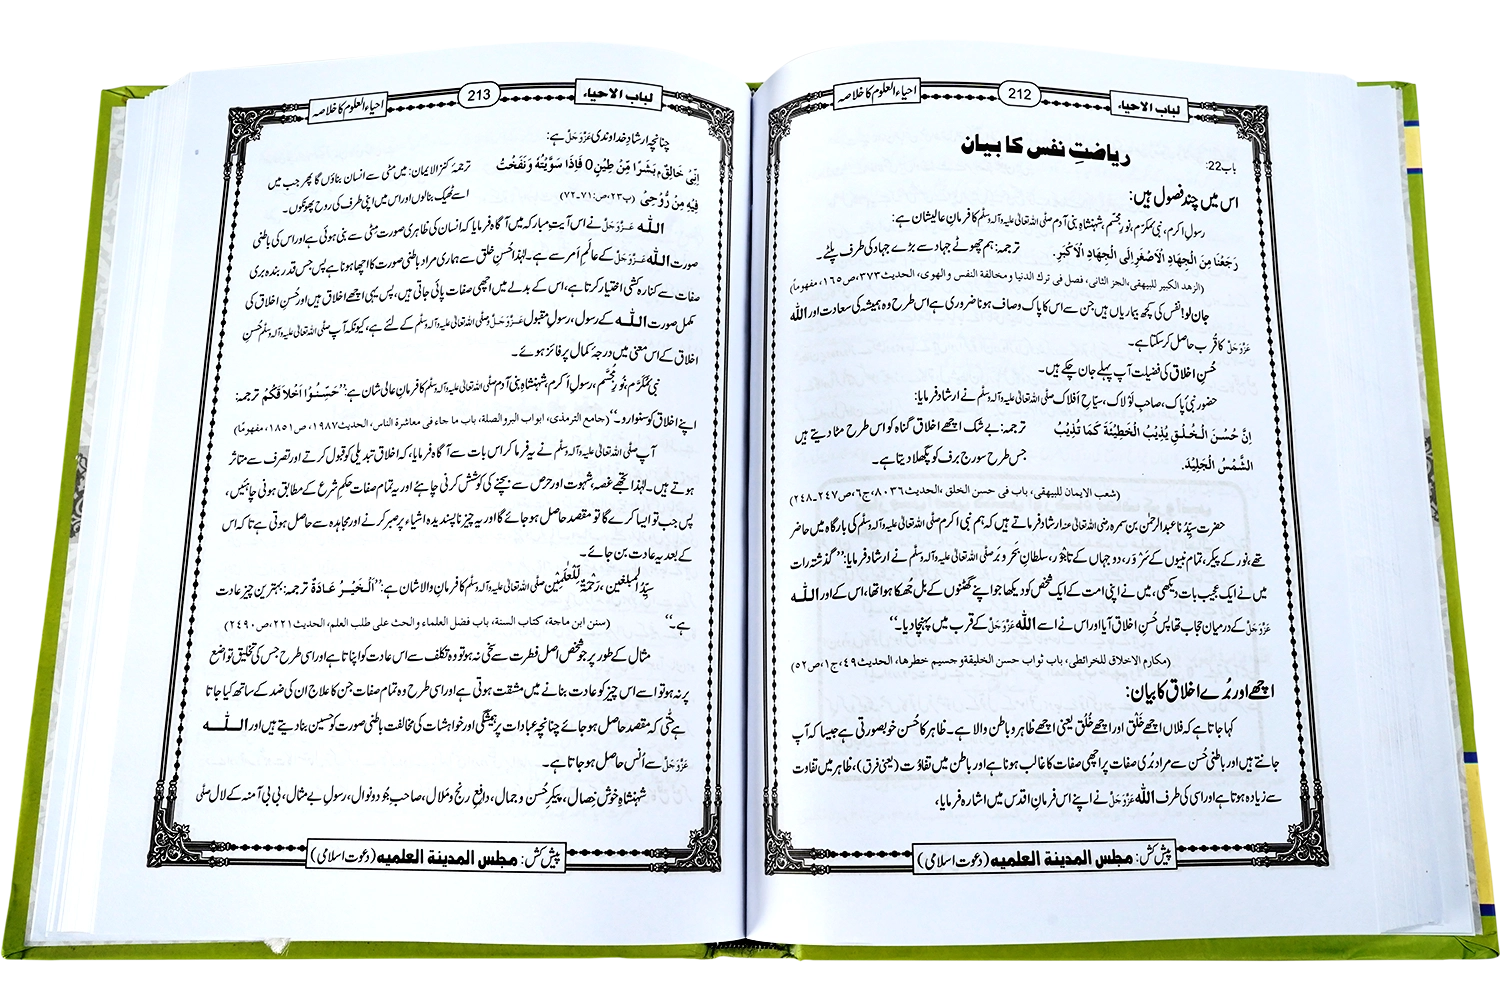 لباب الاحیاء
212
احیاء العلوم کا خلاصہ
باب22:
ریاضتِ نفس کا بیان
اس میں چند فصول ہیں:
رسولِ اکرم، نبیِّ مکرَّم، نورِ مجسَّم، شہنشاہِ بنی آدم صلَّی اللہ تعالیٰ علیہ وآلہ وسلَّم کا فرمانِ عالیشان ہے:
رَجَعْنَا مِنَ الْجِهَادِ الْاَصْغَرِ اِلَى الْجِهَادِ الْاَكْبَرِ. ترجمہ: ہم چھوٹے جہاد سے بڑے جہاد کی طرف پلٹے۔
(الزهد الكبير للبيهقى، الجز الثانى، فصل فى ترك الدنيا ومخالفة النفس والهوى، الحديث۳۷۳، ص۱۶۵، مفهوماً)
جان لو! نفس کی کچھ بیماریاں ہیں جن سے اس کا پاک وصاف ہونا ضروری ہے اس طرح وہ ہمیشہ کی سعادت اور اللہ
عَزَّوَجَلَّ کا قُرب حاصل کر سکتا ہے۔
حُسنِ اخلاق کی فضیلت آپ پہلے جان چکے ہیں۔
حضور نبیِّ پاک، صاحبِ لَوْلاک، سیّاحِ اَفلاک صلَّی اللہ تعالیٰ علیہ وآلہ وسلَّم نے ارشاد فرمایا:
اِنَّ حُسْنَ الْخُلُقِ يُذِيْبُ الْخَطِيْئَةَ كَمَا تُذِيْبُ ترجمہ: بے شک اچھے اخلاق گناہ کو اس طرح مٹا دیتے ہیں
الشَّمْسُ الْجَلِيْدَ. جس طرح سورج برف کو پگھلا دیتا ہے۔
(شعب الايمان للبيهقى، باب فى حسن الخلق، الحديث۸۰۳۶، ج۶، ص۲۴۷۔۲۴۸)
حضرت سیِّدُنا عبدالرحمٰن بن سمرہ رضی اللہ تعالیٰ عنہ ارشاد فرماتے ہیں کہ ہم نبیِ اکرم صلَّی اللہ تعالیٰ علیہ وآلہ وسلَّم کی بارگاہ میں حاضر
تھے، نور کے پیکر، تمام نبیوں کے سَرْوَر، دو جہاں کے تاجْوَر، سلطانِ بَحر و بَر صلَّی اللہ تعالیٰ علیہ وآلہ وسلَّم نے ارشاد فرمایا: ’’گذشتہ رات
میں نے ایک عجیب بات دیکھی، میں نے اپنی امت کے ایک شخص کو دیکھا جو اپنے گھٹنوں کے بل جُھکا ہوا تھا، اس کے اور اللہ
عَزَّوَجَلَّ کے درمیان حجاب تھا پس حُسنِ اخلاق آیا اور اس نے اسے اللہ عَزَّوَجَلَّ کے قرب میں پہنچا دیا۔‘‘
(مكارم الاخلاق للخرائطى، باب ثواب حسن الخليقة وجسيم خطرها، الحديث۴۹، ج۱، ص۵۲)
اچھے اور بُرے اخلاق کا بیان:
کہا جاتا ہے کہ فلاں اچھے خَلْق اور اچھے خُلْق یعنی اچھے ظاہر و باطن والا ہے۔ ظاہر کا حُسن خوبصورتی ہے جیسا کہ آپ
جانتے ہیں اور باطنی حُسن سے مراد بُری صفات پر اچھی صفات کا غالب ہونا ہے اور باطن میں تفاوُت (یعنی فرق)، ظاہر میں تفاوت
سے زیادہ ہوتا ہے اور اسی کی طرف اللہ عَزَّوَجَلَّ نے اپنے اس فرمانِ اقدس میں اشارہ فرمایا،
پیش کش: مجلس المدینۃ العلمیہ (دعوت اسلامی)
لباب الاحیاء
213
احیاء العلوم کا خلاصہ
چنانچہ ارشادِ خداوندی عَزَّوَجَلَّ ہے:
اِنِّیْ خَالِقٌۢ بَشَرًا مِّنْ طِیْنٍ 0 فَاِذَا سَوَّیْتُهٗ وَنَفَخْتُ ترجمۂ کنزالایمان: میں مٹی سے انسان بناؤں گا پھر جب میں
فِیْهِ مِنْ رُّوْحِیْ (پ۲۳، ص:۷۱۔۷۲) اسے ٹھیک بنالوں اور اس میں اپنی طرف کی روح پھونکوں۔
اللہ عَزَّوَجَلَّ نے اس آیتِ مبارکہ میں آگاہ فرمایا کہ انسان کی ظاہری صورت مٹی سے بنی ہوئی ہے اور اس کی باطنی
صورت اللہ عَزَّوَجَلَّ کے عالَمِ اَمر سے ہے۔ لہٰذا حُسنِ خلق سے ہماری مراد باطنی صورت کا اچھا ہونا ہے پس جس قدر بندہ بری
صفات سے کنارہ کشی اختیار کرتا ہے، اس کے بدلے میں اچھی صفات پائی جاتی ہیں، پس یہی اچھے اخلاق ہیں اور حُسنِ اخلاق کی
مکمل صورت اللہ کے رسول، رسولِ مقبول عَزَّوَجَلَّ وصلَّی اللہ تعالیٰ علیہ وآلہ وسلَّم کے لئے ہے، کیونکہ آپ صلَّی اللہ تعالیٰ علیہ وآلہ وسلَّم حُسنِ
اخلاق کے اس معنی میں درجۂ کمال پر فائز ہوئے۔
نبیِّ مُکَرَّم، نورِ مُجَسَّم، رسولِ اکرم، شہنشاہِ بنی آدم صلَّی اللہ تعالیٰ علیہ وآلہ وسلَّم کا فرمانِ عالی شان ہے: ’’حَسِّنُوْا اَخْلَاقَكُمْ ترجمہ:
اپنے اخلاق کو سنوارو۔‘‘ (جامع الترمذى، ابواب البر والصلة، باب ما جاء فى معاشرة الناس، الحديث۱۹۸۷، ص۱۸۵۱، مفهومًا)
آپ صلَّی اللہ تعالیٰ علیہ وآلہ وسلَّم نے یہ فرما کر اس بات سے آگاہ فرمایا، کہ اخلاق تبدیلی کو قبول کرتے اور تصرف سے متاثر
ہوتے ہیں۔ لہٰذا تجھے غصہ، شہوت اور حرص سے بچنے کی کوشش کرنی چاہئے اور یہ تمام صفات حکمِ شرع کے مطابق ہونی چاہئیں،
پس جب تو ایسا کرے گا تو مقصد حاصل ہو جائے گا اور یہ چیز ناپسندیدہ اشیاء پر صبر کرنے اور مجاہدہ سے حاصل ہوتی ہے تا کہ اس
کے بعد یہ عادت بن جائے۔
سیِّدُ المبلغین، رَحْمَۃٌ لِّلْعٰلَمِیْن صلَّی اللہ تعالیٰ علیہ وآلہ وسلَّم کا فرمانِ والاشان ہے: ’’اَلْخَیْرُ عَادَةٌ ترجمہ: بہترین چیز عادت
ہے۔‘‘ (سنن ابن ماجة، كتاب السنة، باب فضل العلماء والحث على طلب العلم، الحديث۲۲۱، ص۲۴۹۰)
مثال کے طور پر جو شخص اصلِ فطرت سے سخی نہ ہو تو وہ تکلف سے اس عادت کو اپناتا ہے اور اسی طرح جس کی تخلیق تواضع
پر نہ ہو تو اسے اس چیز کو عادت بنانے میں مشقت ہوتی ہے اور اسی طرح وہ تمام صفات جن کا علاج ان کی ضد کے ساتھ کیا جاتا
ہے حتّٰی کہ مقصد حاصل ہو جائے چنانچہ عبادات پر ہمیشگی اور خواہشات کی مخالفت باطنی صورت کو حسین بنا دیتے ہیں اور اللہ
عَزَّوَجَلَّ سے اُنس حاصل ہو جاتا ہے۔
شہنشاہِ خوش خِصال، پیکرِ حُسن و جمال، دافعِ رنج و مَلال، صاحبِ جُود و نوال، رسولِ بے مثال، بی بی آمنہ کے لال صلَّی
پیش کش: مجلس المدینۃ العلمیہ (دعوت اسلامی)